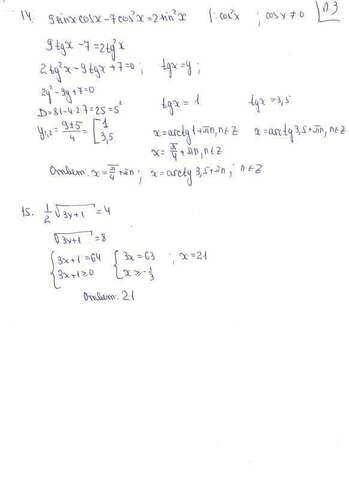 14. 9 sinx cosx - 7cos²x = 2sin²x |: cos²x ; cosx ≠ 0 п3
9tgx - 7 = 2tg²x
2tg²x - 9tgx + 7 = 0 ; tgx = y ;
2y² - 9y + 7 = 0
D = 81 - 4·2·7 = 25 = 5² tgx = 1 tgx = 3,5
y₁,₂ = (9±5)/4 = [1 3,5 x = arctg1 + πn, n∈Z x = arctg3,5 + πn, n∈Z
x = π/4 + πn, n∈Z
Ответ: x = π/4 + πn ; x = arctg3,5 + πn, ; n∈Z
15. 1/2 √3y+1 = 4
√3y+1 = 8
{3x+1 = 64 {3x = 63 ; x = 21
{3x+1 ≥ 0 {x ≥ -1/3
Ответ: 21